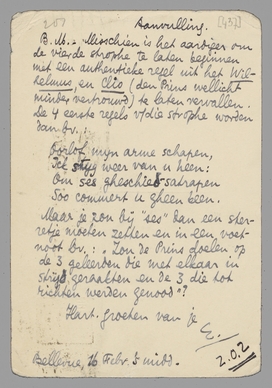 207
[437]
Aanvulling.
B.M. - Misschien is het aardiger om
de vierde strophe te laten beginnen
met een authentieke regel uit het Wil-
helmus, en Clio (den Prins wellicht
minder vertrouwd) te laten vervallen.
De 4 eerste regels v/die strophe worden
dan bv.:
Oorlof mijn arme schapen,
Ick styg weer van u heen:
Om ses gheschied-satrapen
Soo comment u gheen been.
Maar je zou bij "ses" dan een ster-
retje moeten zetten en in een voet-
noot bv.: "Zou de Prins doelen op
de 3 geleerden die met elkaar in
strijd geraakten en de 3 die tot
richters werden genood"?
Hart. groeten van je
E.
Bellevue, 16 Febr. 's midd.
2.0.2